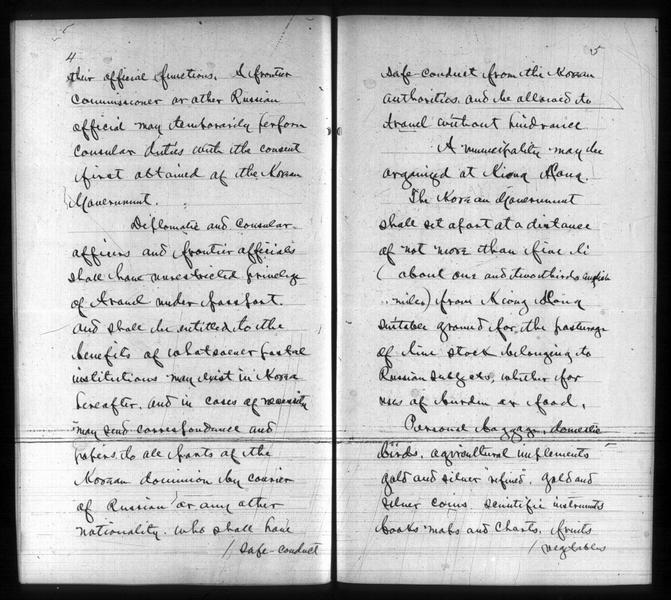 4
their official functions. A frontier
Commissioner or other Russian
official may temporarily perform
Consular duties with the consent
first obtained of the Korean
Government.
Diplomatic and Consular
officers and frontier officials
shall have unrestricted privilege
of travel under passport.
and shall be entitled to the
benefits of whatsoever postal
institutions may exist in Korea
hereafter. and in cases of necessity
may send correspondence and
papers to all parts of the
Korean dominion by courier
of Russian or any other
nationality. who shall have
/ safe-conduct
5
safe-conduct from the Korean
authorities. and be allowed to
travel without hindrance
A municipality may be
organized at Kiong Hong.
The Korean Government
shall set apart at a distance
of not more than five li
(about one and two thirds english
miles) from Kiong Hong
suitable ground for the pasturage
of live stock belonging to
Russian subjects, whether for
uses of burden or food.
Personal baggage, domestic
birds. agricultural implements
gold and silver refined, gold and
silver coins. scientific instruments
books maps and charts. fruits
/ vegetables